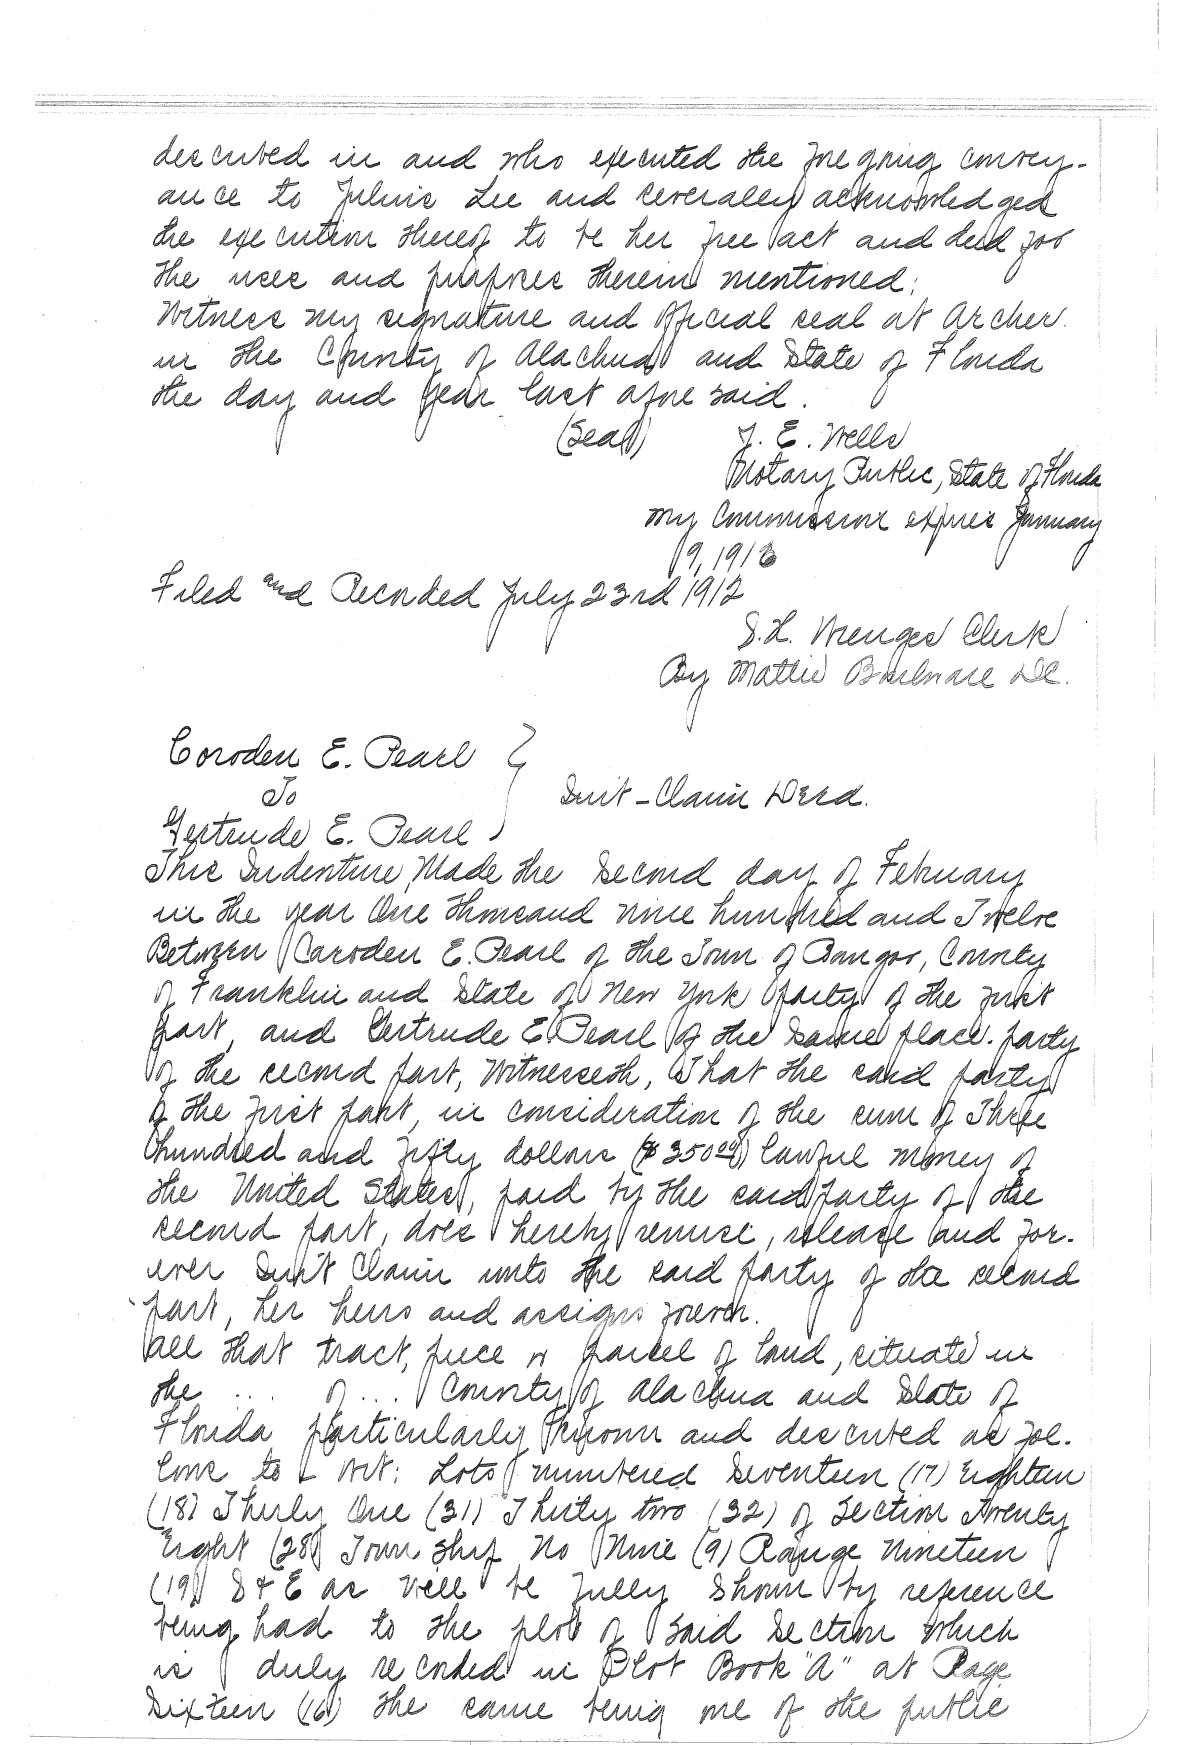 described in and who executed the foregoing convey-
ance to Julius Lee and severally acknowledged
the execution thereof to be her free act and deed for
the uses and purposes therein mentioned.
Witness my signature and official seal at Archer
in the County of Alachua and State of Florida
the day and year last afore said.
(Seal) J. E. Wells
Notary Public, State of Florida
My Commission expires January
9, 1916
Filed and Recorded July 23rd 1912
S. H. Wienges Clerk
By Mattie DC.
Coroden E. Pearl
To Quit-Claim Deed.
Gertrude E. Pearl
This Indenture, Made the Second day of February
in the year One thousand nine hundred and Twelve
Between Caroden E. Pearl of the Town of Bangor, County
of Franklin and State of New York party of the first
part, and Gertrude E. Pearl of the same place. party
of the second part, Witnesseth, That the said party
of the first part, in consideration of the sum of Three
hundred and fifty dollars ($350.00) lawful money of
the United States, paid by the said party of the
second part, does hereby remise, release and for-
ever Quit Claim unto the said party of the second
part, her heirs and assigns forever.
all that tract, piece or parcel of land, situate in
the ... of ... County of Alachua and State of
Florida particularly known and described as fol-
lows to - wit: Lots numbered Seventeen (17) Eighteen
(18) Thirty One (31) Thirty two (32) of Section Twenty
Eight (28) Town ship No Nine (9) Range Nineteen
(19) S & E as will be fully shown by reference
being had to the plot of said Section which
is duly recorded in Plot Book "A" at Page
Sixteen (16) the same being one of the public